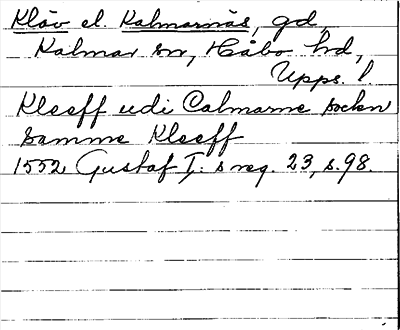 Klöv el. Kalmarnäs, gd,
Kalmar sn, Håbo hd,
Upps. l
Kleeff udi Calmarne socken
Samme Kleeff
1552 Gustaf I: s reg. 23, s. 98.